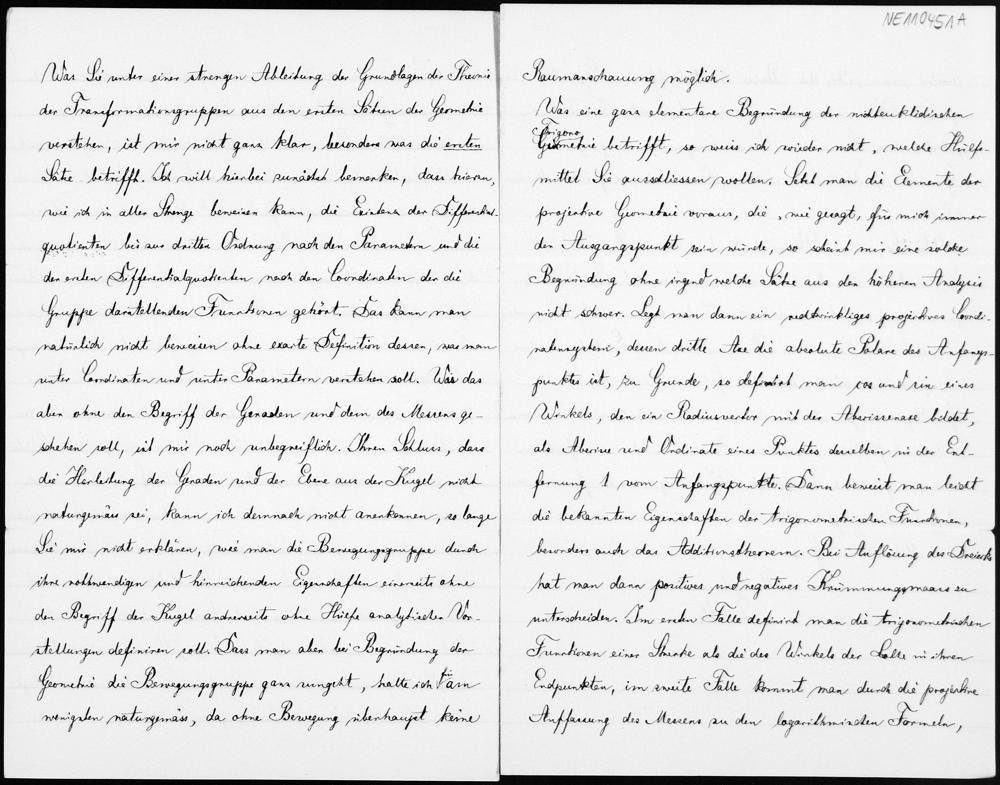 Was Sie unter einer strengen Ableitung der Grundlagen der Theorie
der Transformationsgruppen aus den ersten Sätzen der Geometrie
verstehen, ist mir nicht ganz klar, besonders was die ersten
Sätze betrifft. Ich will hierbei zunächst bemerken, dass hierzu,
wie ich in aller Strenge beweisen kann, die Existenz der Differential-
quotienten bis zur dritten Ordnung nach den Parametern und die
der ersten Differentialquotienten nach den Coordinaten der die
Gruppe darstellenden Funktionen gehört. Das kann man
natürlich nicht beweisen ohne exacte Definition dessen, was man
unter Coordinaten und unter Parametern verstehen soll. Wie das
aber ohne den Begriff der Geraden und dem des Messens ge-
schehen soll, ist mir noch unbegreiflich. Ihren Schluss, dass
die Herleitung der Geraden und der Ebene aus der Kugel nicht
naturgemäss sei, kann ich demnach nicht anerkennen, so lange
Sie mir nicht erklären, wie man die Bewegungsgruppe durch
ihre nothwendigen und hinreichenden Eigenschaften einerseits ohne
den Begriff der Kugel andrerseits ohne Hülfe analytischer Vor-
stellungen definiren soll. Dass man aber bei Begründung der
Geometrie die Bewegungsgruppe ganz umgeht, halte ich für am
wenigsten naturgemäss, da ohne Bewegung überhaupt keine
NE110451A
Raumanschauung möglich.
Was eine ganz elementare Begründung der nichteuklidischen
Trigonometrie betrifft, so weiss ich wieder nicht, welche Hülfs-
mittel Sie ausschliessen wollen. Setzt man die Elemente der
projektive Geometrie voraus, die, wie gesagt, für mich immer
den Ausgangspunkt sein würde, so scheint mir eine solche
Begründung ohne irgend welche Sätze aus den höheren Analysis
nicht schwer. Legt man dann ein rechtwinkliges projektives Coordi-
natensystem, dessen dritte Axe die absolute Polare des Anfangs-
punktes ist, zu Grunde, so definirt man cos und sin eines
Winkels, den ein Radiusvector mit der Abscissenaxe bildet,
als Abscisse und Ordinate eines Punktes desselben in der Ent-
fernung 1 vom Anfangspunkte. Dann beweist man leicht
die bekannten Eigenschaften der trigonometrischen Functionen,
besonders auch das Additionstheorem. Bei Auflösung des Dreiecks
hat man dann positives und negatives Krümmungsmaass zu
unterscheiden. Im ersten Falle definirt man die trigonometrischen
Funktionen einer Strecke als die des Winkels der Lothe in ihren
Endpunkten, im zweite Falle kommt man durch die projektive
Auffassung des Messens zu den logarithmischen Formeln,